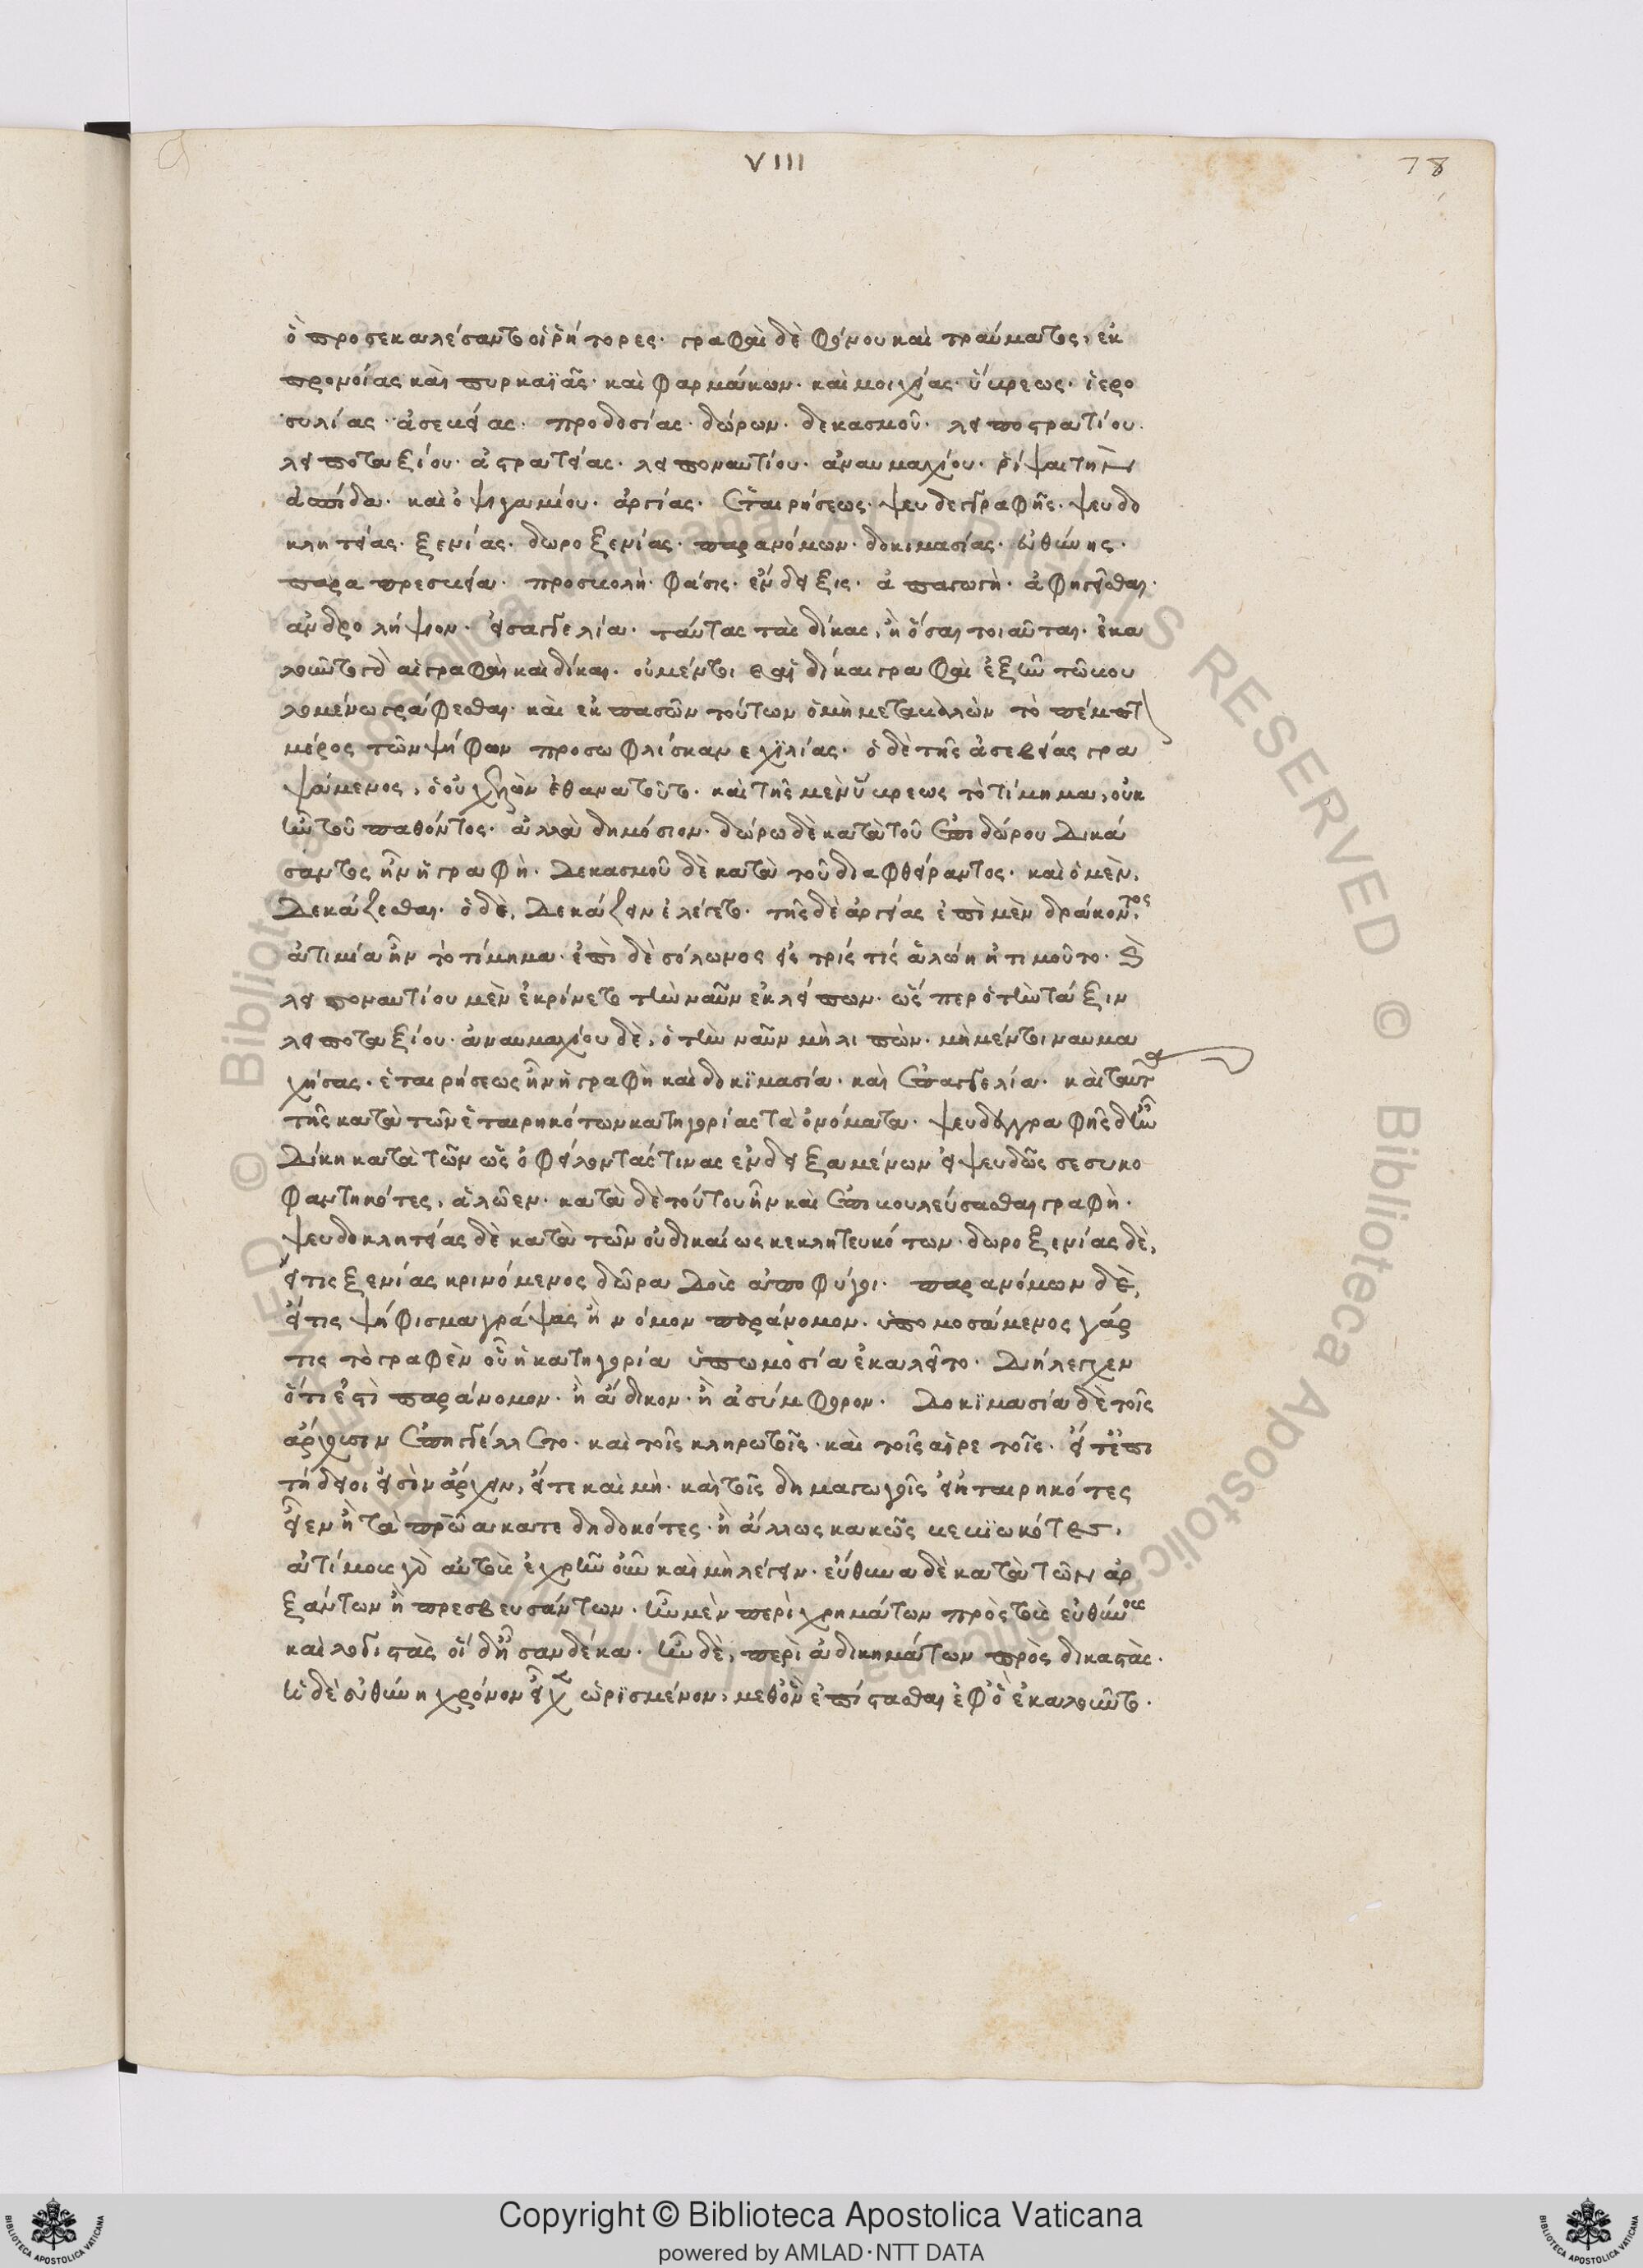 VIII
78
ὃ προσεκαλέσαντο οἱ ῥήτορες. γραφαὶ δὲ φόνου καὶ τραύματος, ἐκ
προνοίας καὶ πυρκαϊᾶς. καὶ φαρμάκων. καὶ μοιχείας. ὕβρεως. ἱερο
συλίας. ἀσεβείας. προδοσίας. δώρων. δεκασμοῦ. λειποστρατίου.
λειποταξίου. ἀστρατείας. λειποναυτίου. ἀναυμαχίου. ῥίψαι τὴν
ἀσπίδα. καὶ ὀψιγαμίου. ἀργίας. ἑταιρήσεως. ψευδεγγραφῆς. ψευδο
κλητείας. ξενίας. δωροξενίας. παρανόμων. δοκιμασίας. εὐθύνης.
παραπρεσβεία. προσβολή. φάσις. ἔνδειξις. ἀπαγωγή. ἀφηγεῖσθαι.
ἀνδρολήψιον. εἰσαγγελία. ταύτας τὰς δίκας, ἢ ὅσαι τοιαῦται. ἐκα
λοῦντο γὰρ αἱ γραφαὶ καὶ δίκαι. οὐ μέντοι καὶ αἱ δίκαι γραφαὶ ἐξῆν τῷ βου
λομένῳ γράφεσθαι. καὶ ἐκ πασῶν τούτων ὁ μὴ μεταβαλὼν τὸ πέμπτ
μέρος τῶν ψήφων προσωφλίσκανε χιλίας. ὁ δὲ τῆς ἀσεβείας γρα
ψάμενος, ὁ οὐχ ἑλὼν ἐθανατοῦτο. καὶ τῆς μὲν ὕβρεως τὸ τίμημα, οὐκ
ἦν τοῦ παθόντος. ἀλλὰ δημόσιον. δώρω δὲ κατὰ τοῦ ἐπὶ δώρου δικά
σαντος ἦν ἡ γραφή. δεκασμοῦ δὲ κατὰ τοῦ διαφθείραντος. καὶ ὁ μὲν,
δεκάζεσθαι. ὁ δὲ, δεκάζειν ἐλέγετο. τῆς δὲ ἀργίας ἐπὶ μὲν δράκοντος,
ἀτιμία ἦν τὸ τίμημα. ἐπὶ δὲ σόλωνος εἰ τρίς τίς ἁλώη ἠτιμοῦτο. καὶ
λειποναυτίου μὲν ἐκρίνετο τὴν ναῦν ἐκλείπων. ὥσπερ ὁ τὴν τάξιν
λειποταξίου. ἀναυμαχίου δὲ, ὁ τὴν ναῦν μὴ λιπὼν. μὴ μέντοι ναυμα
χήσας. ἑταιρήσεως ἦν ἡ γραφὴ καὶ δοκϊμασία. καὶ ἐπαγγελία. καὶ ταῦτα
τῆς κατὰ τῶν ἑταιρηκότων κατηγορίας τὰ ὀνόματα. ψευδεγγραφῆς δ' ἦν
δίκη κατὰ τῶν ὡς ὀφείλοντάς τινας ἐνδειξαμένων εἰ ψευδῶς σεσυκο
φαντηκότες, ἁλῶεν. κατὰ δὲ τούτου ἦν καὶ ἐπιβουλεύσασθαι γραφή.
ψευδοκλητείας δὲ κατὰ τῶν οὐ δικαίως κεκλητευκότων. δωροξενίας δὲ,
εἴ τις ξενίας κρινόμενος δῶρα δοὺς ἀποφύγοι. παρανόμων δὲ,
εἴ τις ψήφισμα γράψας ἢ νόμον παράνομον. ὑπομοσάμενος γάρ
τις τὸ γραφὲν οὗ ἡ κατηγορία ὑπωμοσία ἐκαλεῖτο. διήλεγχεν
ὅτι ἐστὶ παράνομον. ἢ ἄδικον. ἢ ἀσύμφορον. δοκϊμασία δὲ τοῖς
ἄρχουσιν ἐπηγγέλλετο. καὶ τοῖς κληρωτοῖς. καὶ τοῖς αἱρετοῖς. εἴτ' ἐπι
τήδειοι εἰσὶν ἄρχειν, εἴτε καὶ μή. καὶ τοῖς δημαγωγοῖς εἰ ἡταιρηκότες
εἶεν ἢ τὰ πατρῷα κατεδηδοκότες. ἢ ἄλλως κακῶς βεβϊωκότες,
ἀτίμους γὰρ αὐτοὺς ἐχρῆν εἶναι καὶ μὴ λέγειν. εὔθυνα δὲ κατὰ τῶν ἀρ
ξάντων ἢ πρεσβευσάντων. ἦν μὲν περὶ χρημάτων πρὸς τοὺς εὐθύνους
καὶ λογιστὰς οἳ δ' ἦσαν δέκα. ἦν δὲ, περὶ ἀδικημάτων πρὸς δικαστὰς.
ἡ δὲ εὐθύνη χρόνον εἶχε ὡρϊσμένον, μεθ' ὃν ἐπίστασθαι ἐφ' ὃ ἐκαλοῦντο.